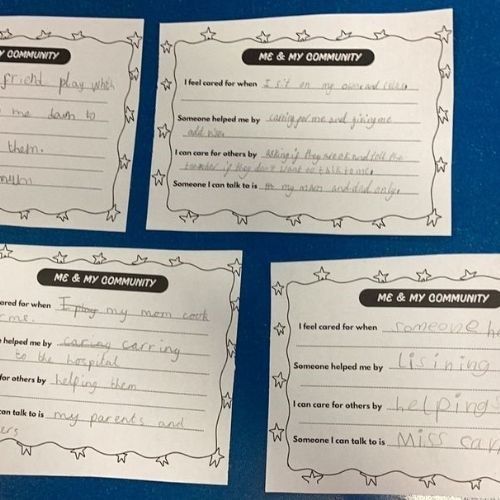 Y COMMUNITY
friend play whith
me dawn to
them.
mum
ME & MY COMMUNITY
I feel cared for when I sit on my own and
Someone helped me by carring for me and giving me
I can care for others by asking if they are ok and tell the
teacher if they don't want to talk to me.
Someone I can talk to is my mam and dad only.
ME & MY COMMUNITY
ared for when I play my mom cook
r me.
e helped me by caring carring
to the hospital
for others by helping them
can talk to is my parents and
ers
ME & MY COMMUNITY
I feel cared for when someone he
Someone helped me by lisining
I can care for others by helping
Someone I can talk to is Miss car